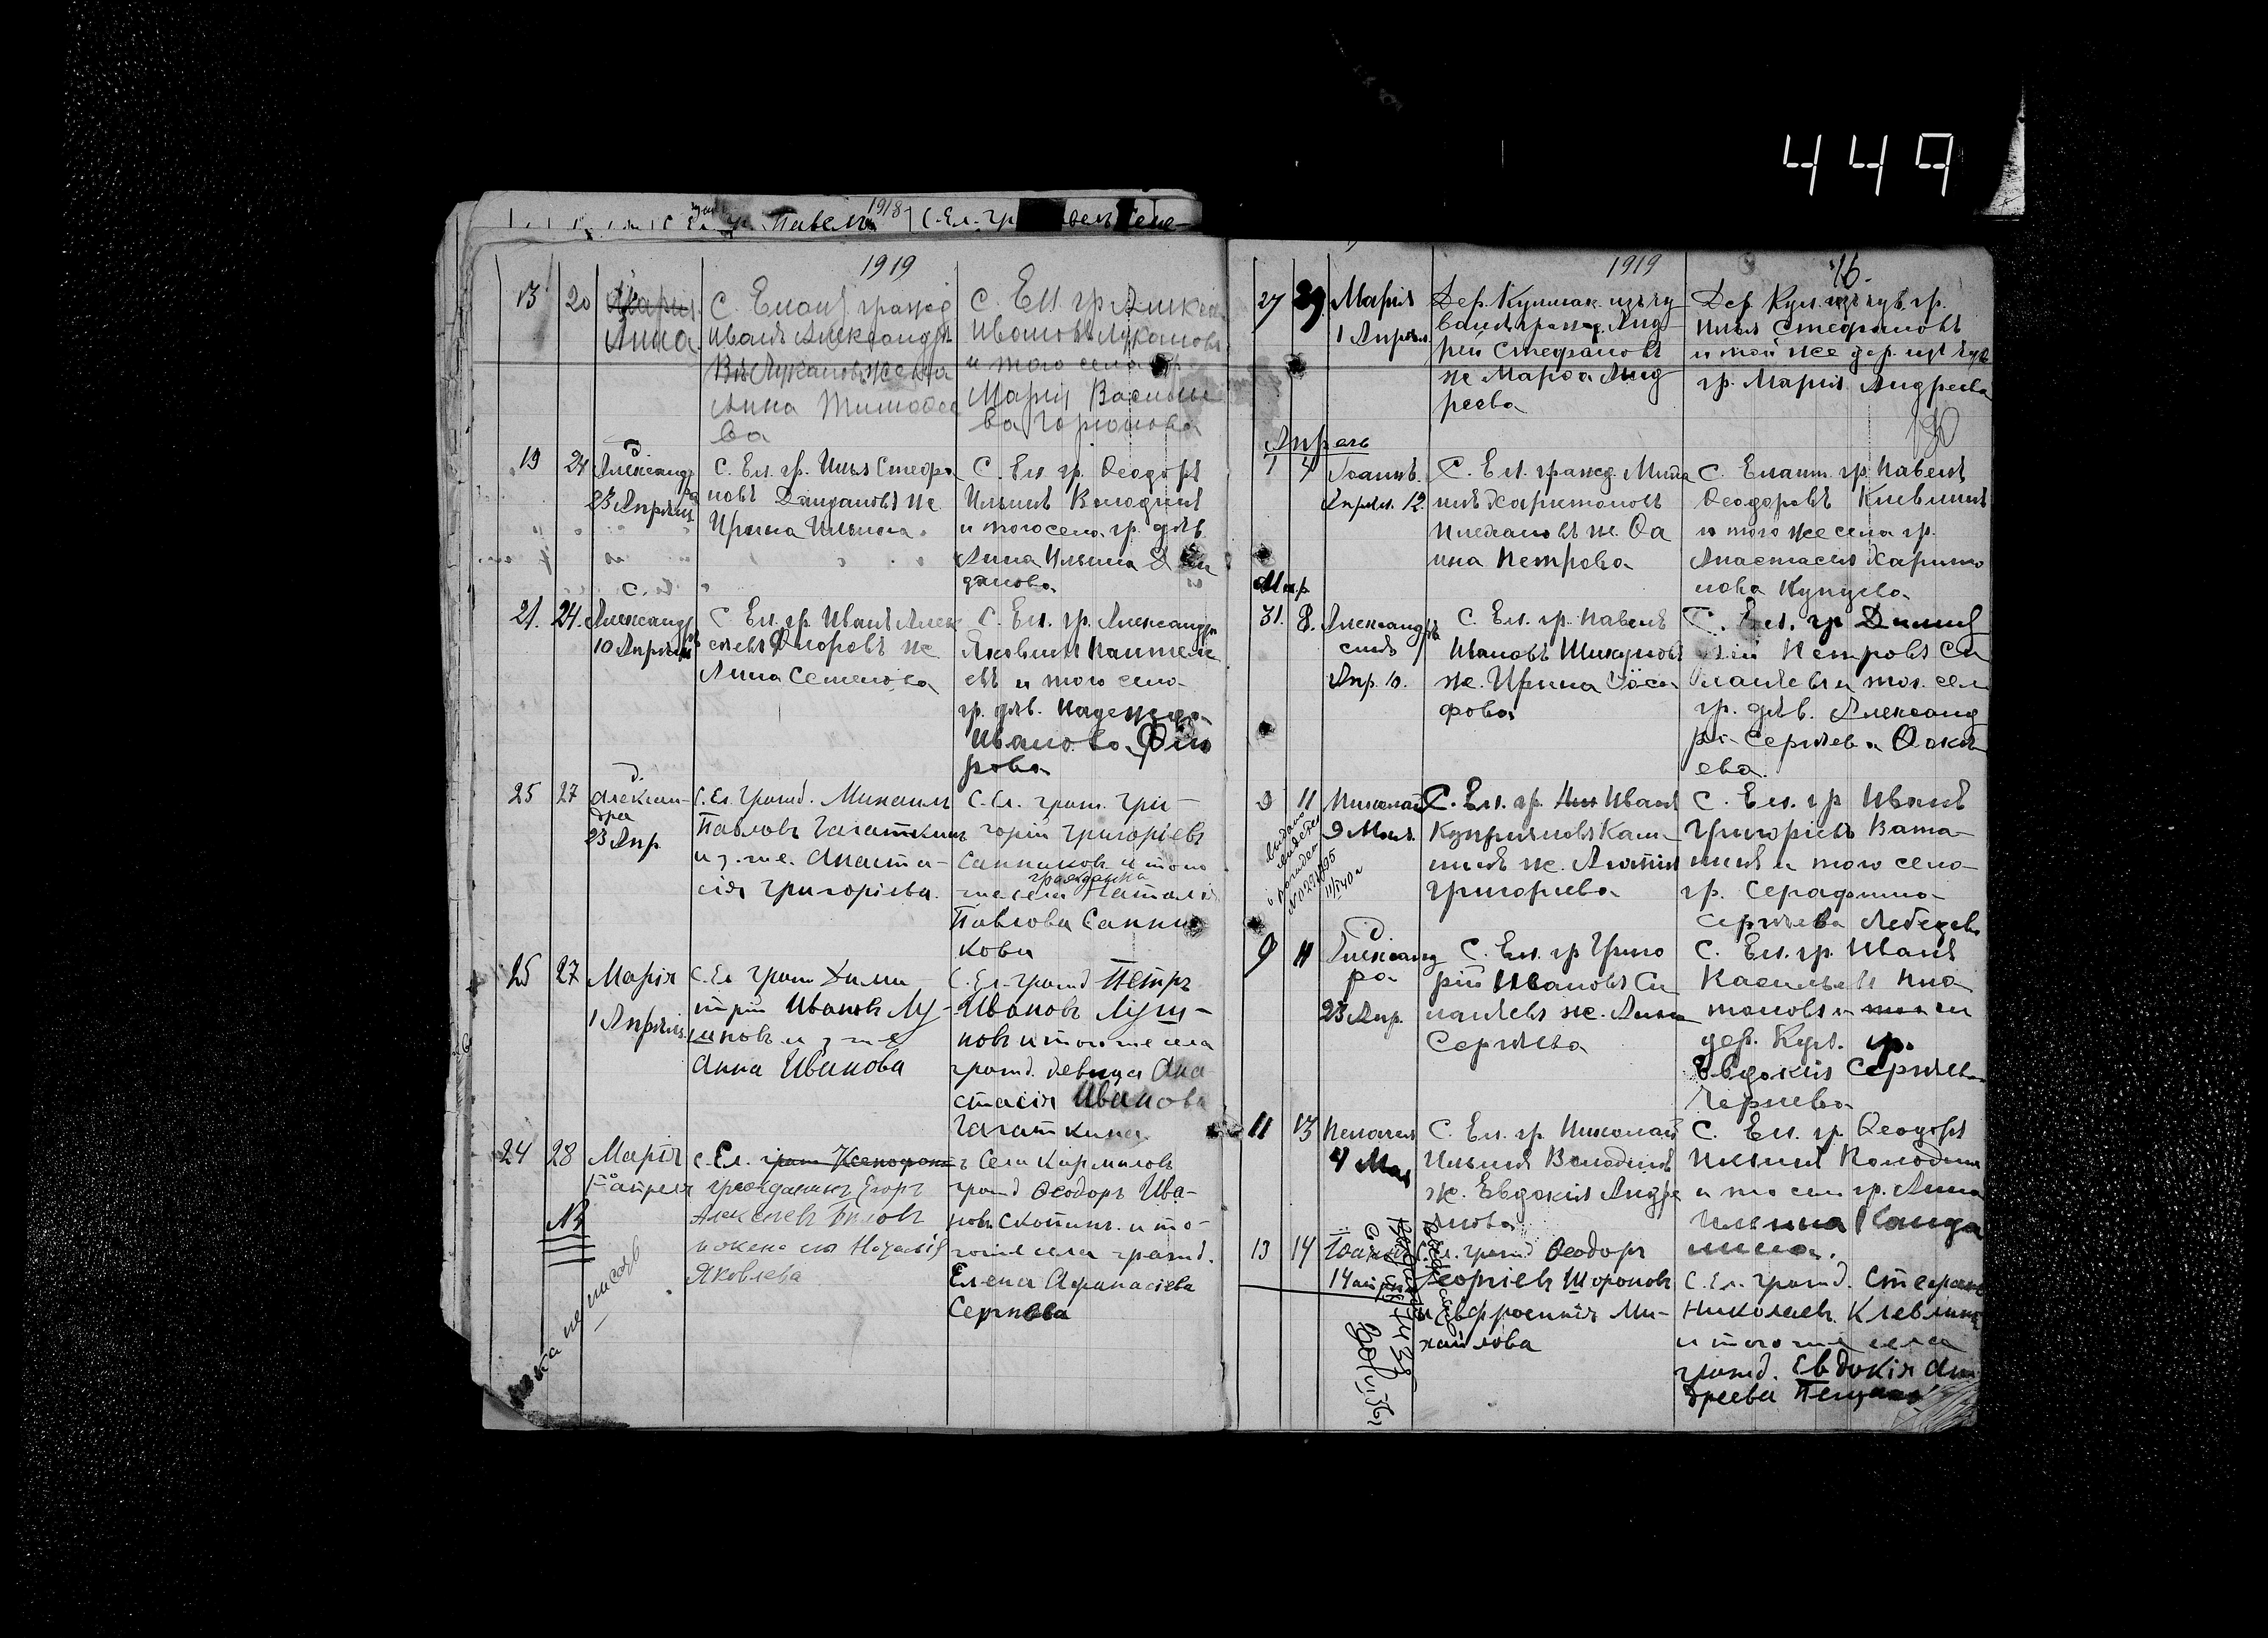 449
1918
Павелъ
С. Ел. гр
1919
13
20
Марія
Анна
С. Елань гражд
Иванъ Александр
въ Лукановъ жена
Анна Тимофее
ва
С. Ел. гр Алексѣй
Ивановъ Лукановъ
и того села гр
Марія Василье
ва Горюнова
19
24
Александ
ра
23 Апрѣля
С. Ел. гр. Илья Стефа
новъ Дандановъ ж.
Ирина Ильина
С. Ел. гр. Ѳеодоръ
Ильинъ Володинъ
и того села гр. дѣв.
Анна Ильина
данова
21.
24.
Александръ
10 Апрѣля
С. Ел. гр. Иванъ Алек
сѣевъ Флоровъ ж.
Анна Семенова
С. Ел. гр. Александръ
Яковлевъ Пантеле
евъ и того села
гр. дѣв. Надежда
Иванова Фло
рова
25
27
Алексан-
дра
23 Апр.
С. Ел. гражд. Михаилъ
Павловъ Чагаткинъ
и з. ж. е. Анаста-
сія Григоріева.
С. Ел. граж. Гри-
горій Григоріевъ
Санниковъ и того
гражданка
же села Наталія
Павлова Санни
кова
25
27
Марія
1 Апрѣля
С. Ел. гражд Дими
трій Ивановъ Лу-
шновъ и з ж е
Анна Иванова
С. Ел. гражд Петръ
Ивановъ Луш-
новъ и того же села
гражд. девица Ана
стасія Иванова
Чагаткина
24
28
Марія
1го апреля
С. Ел. граж Ксенофон
гражданинъ Егоръ
Алексеевъ Бѣловъ
и жена его Наталія
Яковлева
Села Кирмаловъ
гражд Ѳеодоръ Ива-
новъ Скопинъ и то-
го же села гражд.
Елена Афанасіева
Сергѣева
№
1919
16.
27
29
Марія
1 Апрѣля
Дер. Кулишак. изъ чу
вашъ гражд. Анд-
рей Стефановъ
ж Марѳа Анд
реева
Дер. Кул. изъ чув гр.
Илья Стефановъ
и той же дер. изъ чув
гр. Марія Андреева
Апрель
1
7
Іоаннъ.
Апрѣл. 12.
С. Ел. гражд. Миха
илъ Харитоновъ
Плехановъ ж. Ѳа
ина Петрова
С. Елань. гр. Павелъ
Ѳеодоровъ Клевлинъ
и того же села гр.
Анастасія Харито
нова Купцева
Мар
31.
8.
Александръ
Апр. 10.
С. Ел. гр. Павелъ
Ивановъ Шикуновъ
ж. Ирина Іоси
фова
С. Ел. гр Димит
рій Петровъ Си
лантьевъ и тог. сел
гр. дѣв. Александ
ра Сергѣева Ѳокѣ
ева.
9
11
Николай
9 Мая.
выдано
С. Ел. гр. Иванъ
Купріяновъ Каш-
инъ ж. Агафія
Григорьева
С. Ел. гр Иванъ
Григорьевъ Вата-
нинъ и того села
гр. Серафима
Сергѣева Лебедева
9
11
Александ
ра
23 Апр.
С. Ел. гр Григо
рій Ивановъ Си
лантьевъ ж. Анна
Сергѣева
С. Ел. гр. Иванъ
Васильевъ Пла
тоновъ и
дер. Кул. гр.
Евдокія Сергѣева
Чернева
11
13
Пелагея
4 Мая
С. Ел. гр Николай
Ильинъ Володинъ
ж. Евдокія Андре
янова
С. Ел. гр. Ѳеодоръ
Ильинъ Володинъ
и то сел гр. Анна
Ильина Канда
лисла.
13
14
Іоаннъ
14 апрѣ
С. Ел. гражд Ѳеодоръ
Георгіевъ Широковъ
и Евфросинія Ми-
хайлова
С. Ел. гражд. Стефанъ
Николаевъ Клевлинъ
и того же села
гражд. Евдокія Ан
дреева